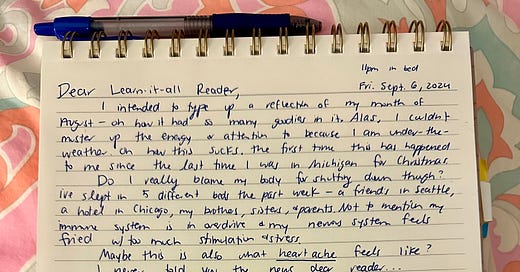 11pm in bed
Fri. Sept. 6, 2024
Dear Learn-it-all Reader,
I intended to type up a reflection of my month of
August - oh how it had so many goodies in it. Alas, I couldn't
muster up the energy or attention to because I am under-the-
weather. Oh how this sucks, the first time this has happened
to me since the last time I was in Michigan for Christmas.
Do I really blame my body for shutting down though?
I've slept in 5 different beds the past week - a friends in Seattle,
a hotel in Chicago, my brothers, sisters, & parents. Not to mention my
immune system is in overdrive & my nervous system feels
fried w/ too much stimulation & stress.
Maybe this is also what heartache feels like?
I never told you the news dear reader...